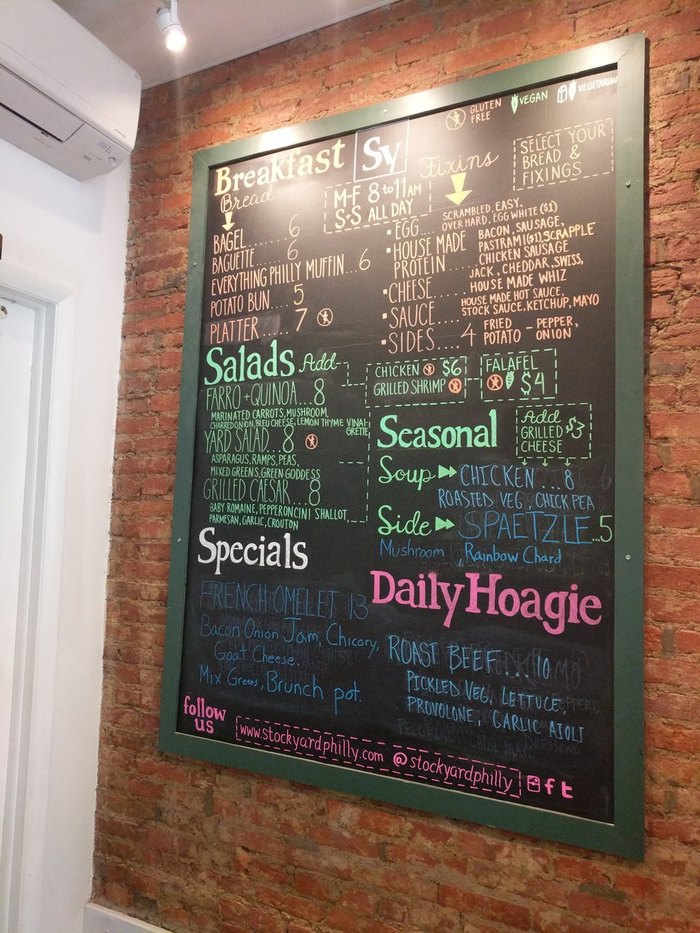 GLUTEN FREE
VEGAN
VEGETARIAN
Breakfast
Sy
M-F 8 to 11AM
S+S ALL DAY
Bread
BAGEL........ 6
BAGUETTE....... 6
EVERYTHING PHILLY MUFFIN...6
POTATO BUN.... 5
PLATTER ..... 7
Fixins
SELECT YOUR
BREAD &
FIXINGS
• EGG....
SCRAMBLED, EASY,
OVER HARD, EGG WHITE ($1)
• HOUSE MADE
PROTEIN....
BACON, SAUSAGE,
PASTRAMI ($1), SCRAPPLE
CHICKEN SAUSAGE
• CHEESE....
JACK, CHEDDAR, SWISS,
HOUSE MADE WHIZ
• SAUCE....
HOUSE MADE HOT SAUCE,
STOCK SAUCE, KETCHUP, MAYO
• SIDES.... 4
FRIED - PEPPER,
POTATO ONION
Salads Add
CHICKEN $6
GRILLED SHRIMP
FALAFEL
$4
FARRO + QUINOA...8
MARINATED CARROTS, MUSHROOM,
CHARRED ONION, BLEU CHEESE, LEMON THYME VINAIGRETTE
YARD SALAD...8
ASPARAGUS, RAMPS, PEAS,
MIXED GREENS, GREEN GODDESS
GRILLED CAESAR...8
BABY ROMAINE, PEPPERONCINI SHALLOT,
PARMESAN, GARLIC, CROUTON
Seasonal
Add
GRILLED $3
CHEESE
Soup CHICKEN...8
ROASTED VEG, CHICK PEA
Side SPAETZLE...5
Mushroom, Rainbow Chard
Specials
FRENCH OMELET 13
Bacon Onion Jam, Chicory,
Goat Cheese.
Mix Greens, Brunch pot.
Daily Hoagie
ROAST BEEF... 10
PICKLED VEG, LETTUCE,
PROVOLONE, GARLIC AIOLI
follow
us
www.stockyardphilly.com @stockyardphilly
f t